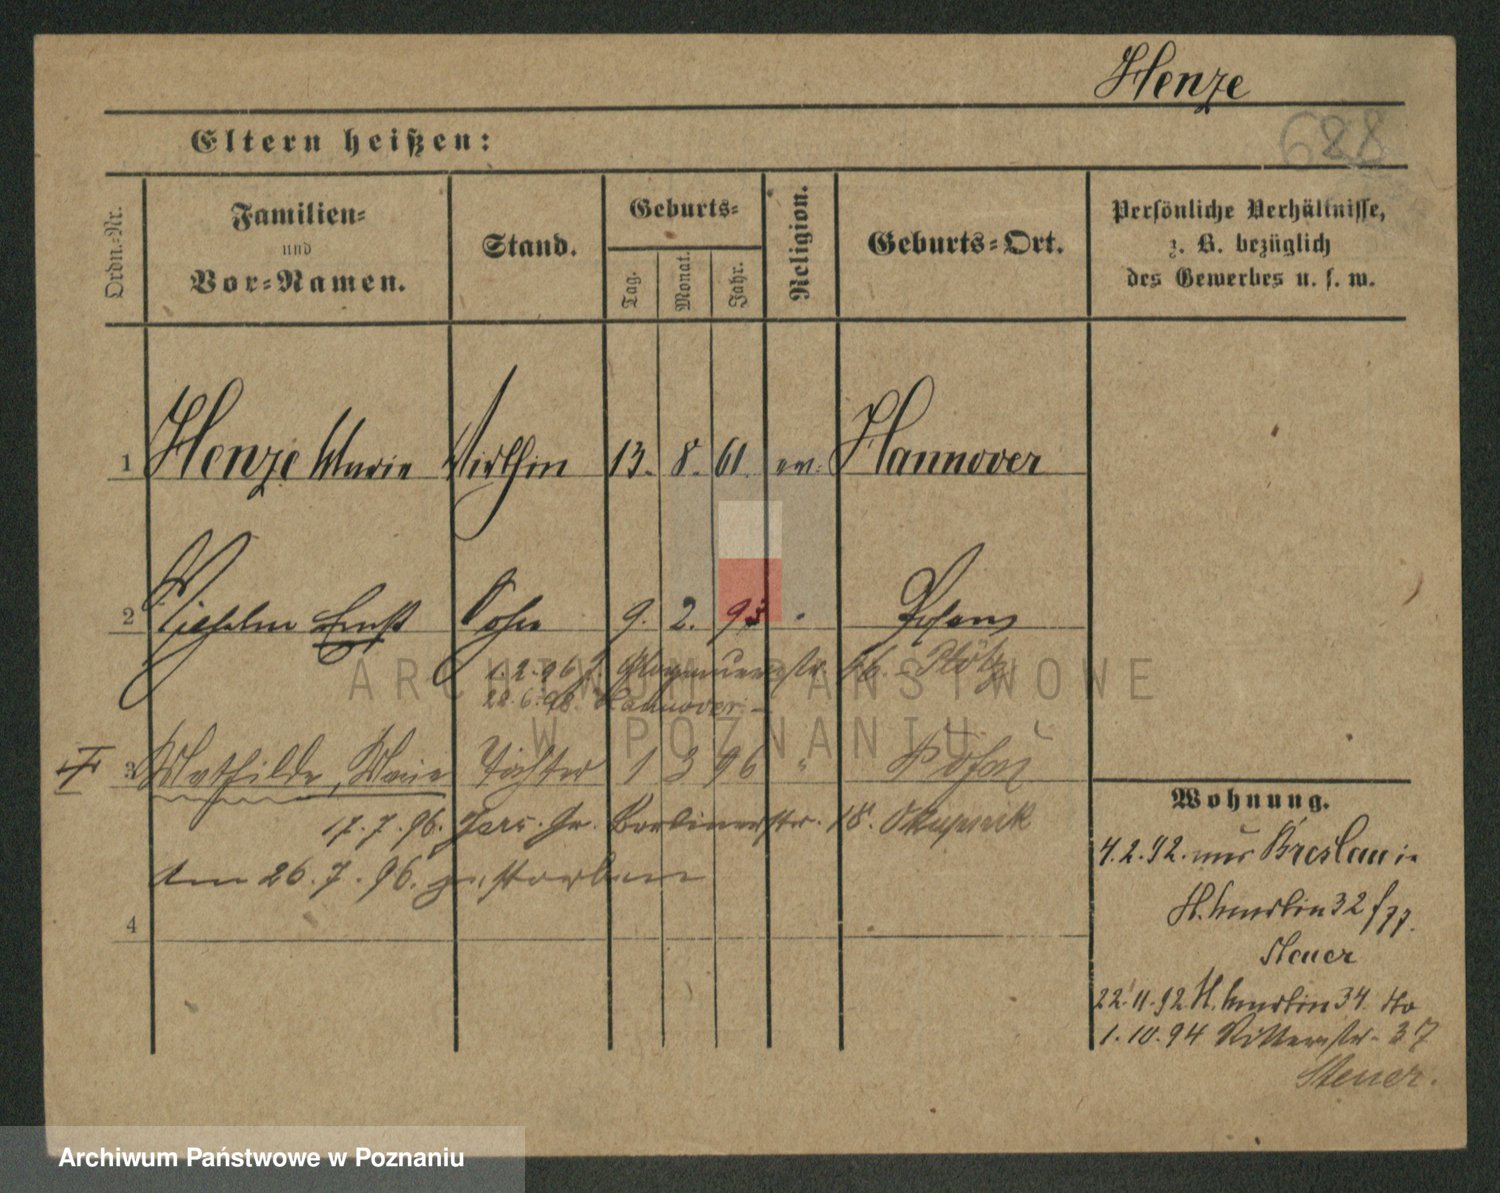 Henze
688
Eltern heißen:
Ordn.-Nr.
Familien-
und
Vor-Namen.
Stand.
Geburts-
Tag.
Monat.
Jahr.
Religion.
Geburts-Ort.
Persönliche Verhältnisse,
z. B. bezüglich
des Gewerbes u. s. w.
1 Henze Marie Wirthin 13. 8. 61. ev. Hannover
2 Wilhelm Ernst Sohn 9. 2. 93 " Posen
1.2.96 J. 16. Plötz
28.6.98. Hannover.
3 Mathilde, Marie Tochter 1 3 96 " Posen
17.7.96. Gr. Berlinerstr. 18. Skupnik
Am 26.7.96. gestorben
4
Wohnung.
4.2.92. aus Breslau in
St. Martin 32
Steuer
22.11.92 St. Martin 34.
1.10.94 Ritterstr. 37
Steuer.
ARCHIWUM PAŃSTWOWE
W POZNANIU
Archiwum Państwowe w Poznaniu